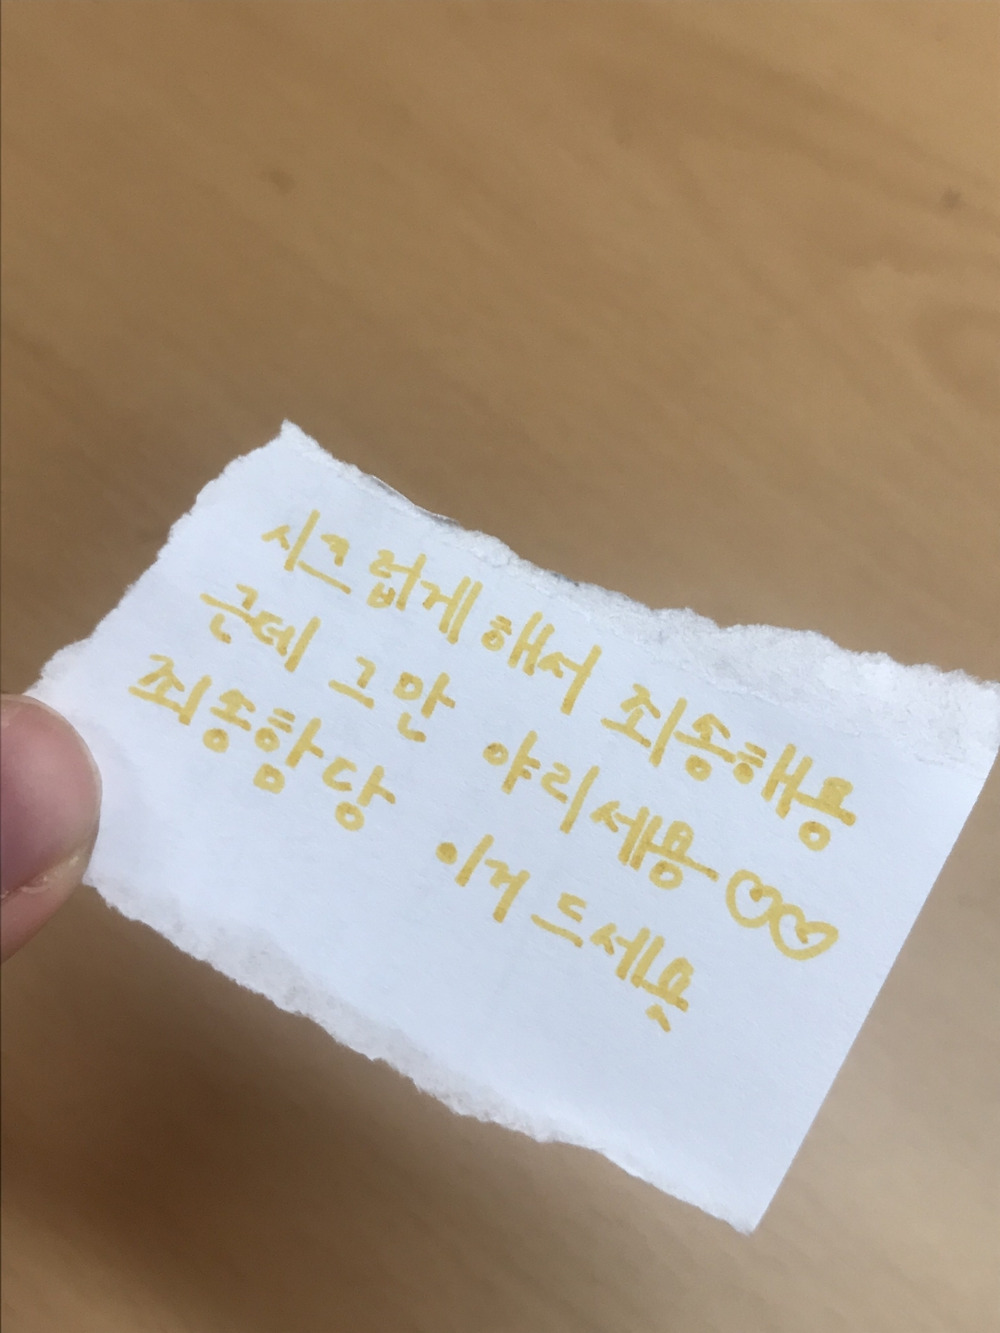 시크럽게 해서 죄송해용
근데 그만 야리세용 ♡♡
죄송함당
이거 드세욧